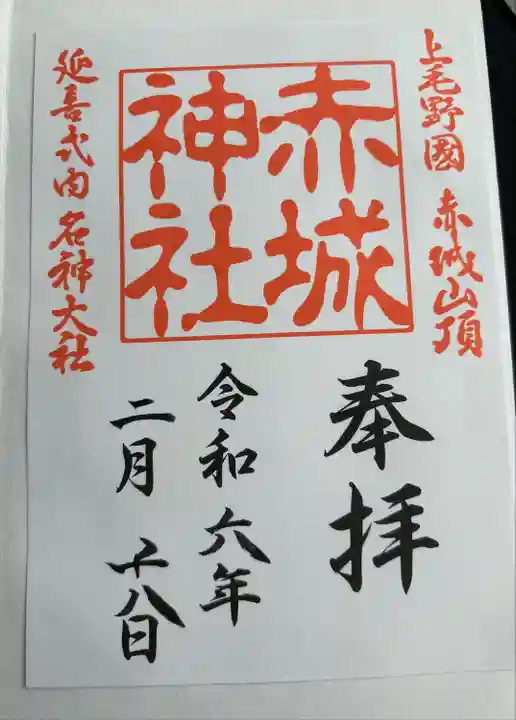 上毛野國 赤城山頂
赤城
神社
延喜式内 名神大社
奉拝
令和 六年
二月 十八日